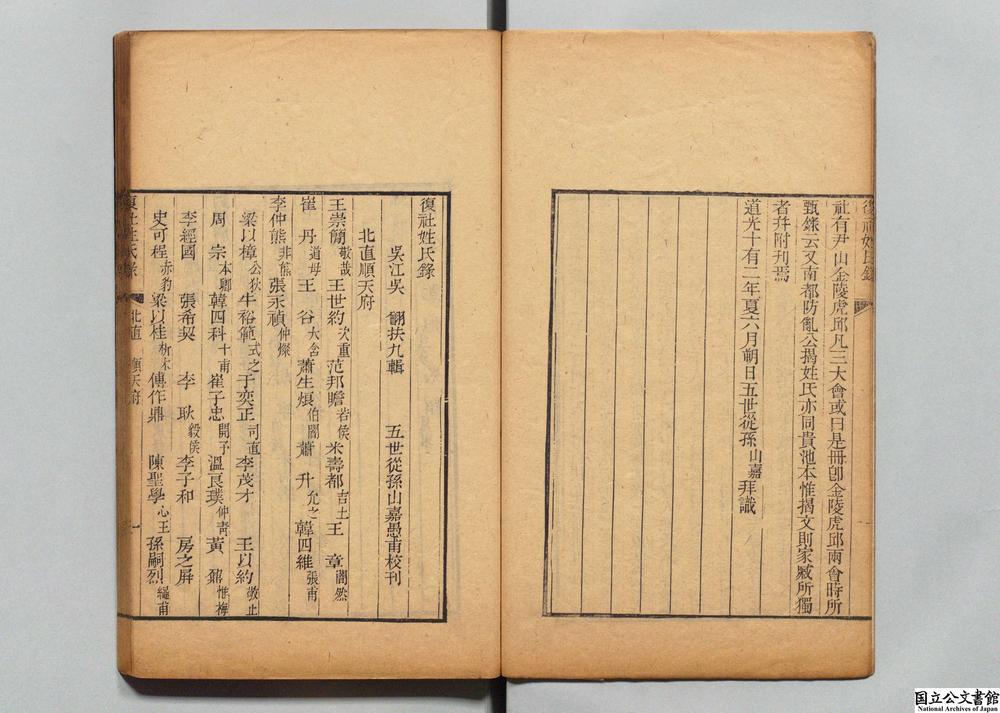 社有尹山金陵虎邱凡三大會或曰是冊卽金陵虎邱兩會時所
甄錄云又南都防亂公揭姓氏亦同貴池本惟揭文則家臧所獨
者幷附刊焉
道光十有二年夏六月朔日五世從孫山嘉拜識
復社姓氏錄
吳江吳 翻扶九輯 五世從孫山嘉愚甫校刊
北直順天府
王崇簡敬哉 王世約次重 范邦瞻若侯 米壽都吉土 王 章闇然
崔 丹道母 王 谷大含 蕭生煾伯闇 蕭 升允之 韓四維張甫
李仲熊非熊 張永禎仲燦
梁以樟公狄 牛裕範式之 于奕正司直 李茂才 王以約敬止
周 宗本卿 韓四科十甫 崔子忠開予 溫良璞仲靑 黃 鼐惟梅
李經國 張希契 李 耿毅侯 李子和 房之屏
史可程赤豹 梁以桂斬木 傅作鼎 陳聖學心王 孫嗣烈纘甫
復社姓氏錄 北直 順天府 一
国立公文書館
National Archives of Japan